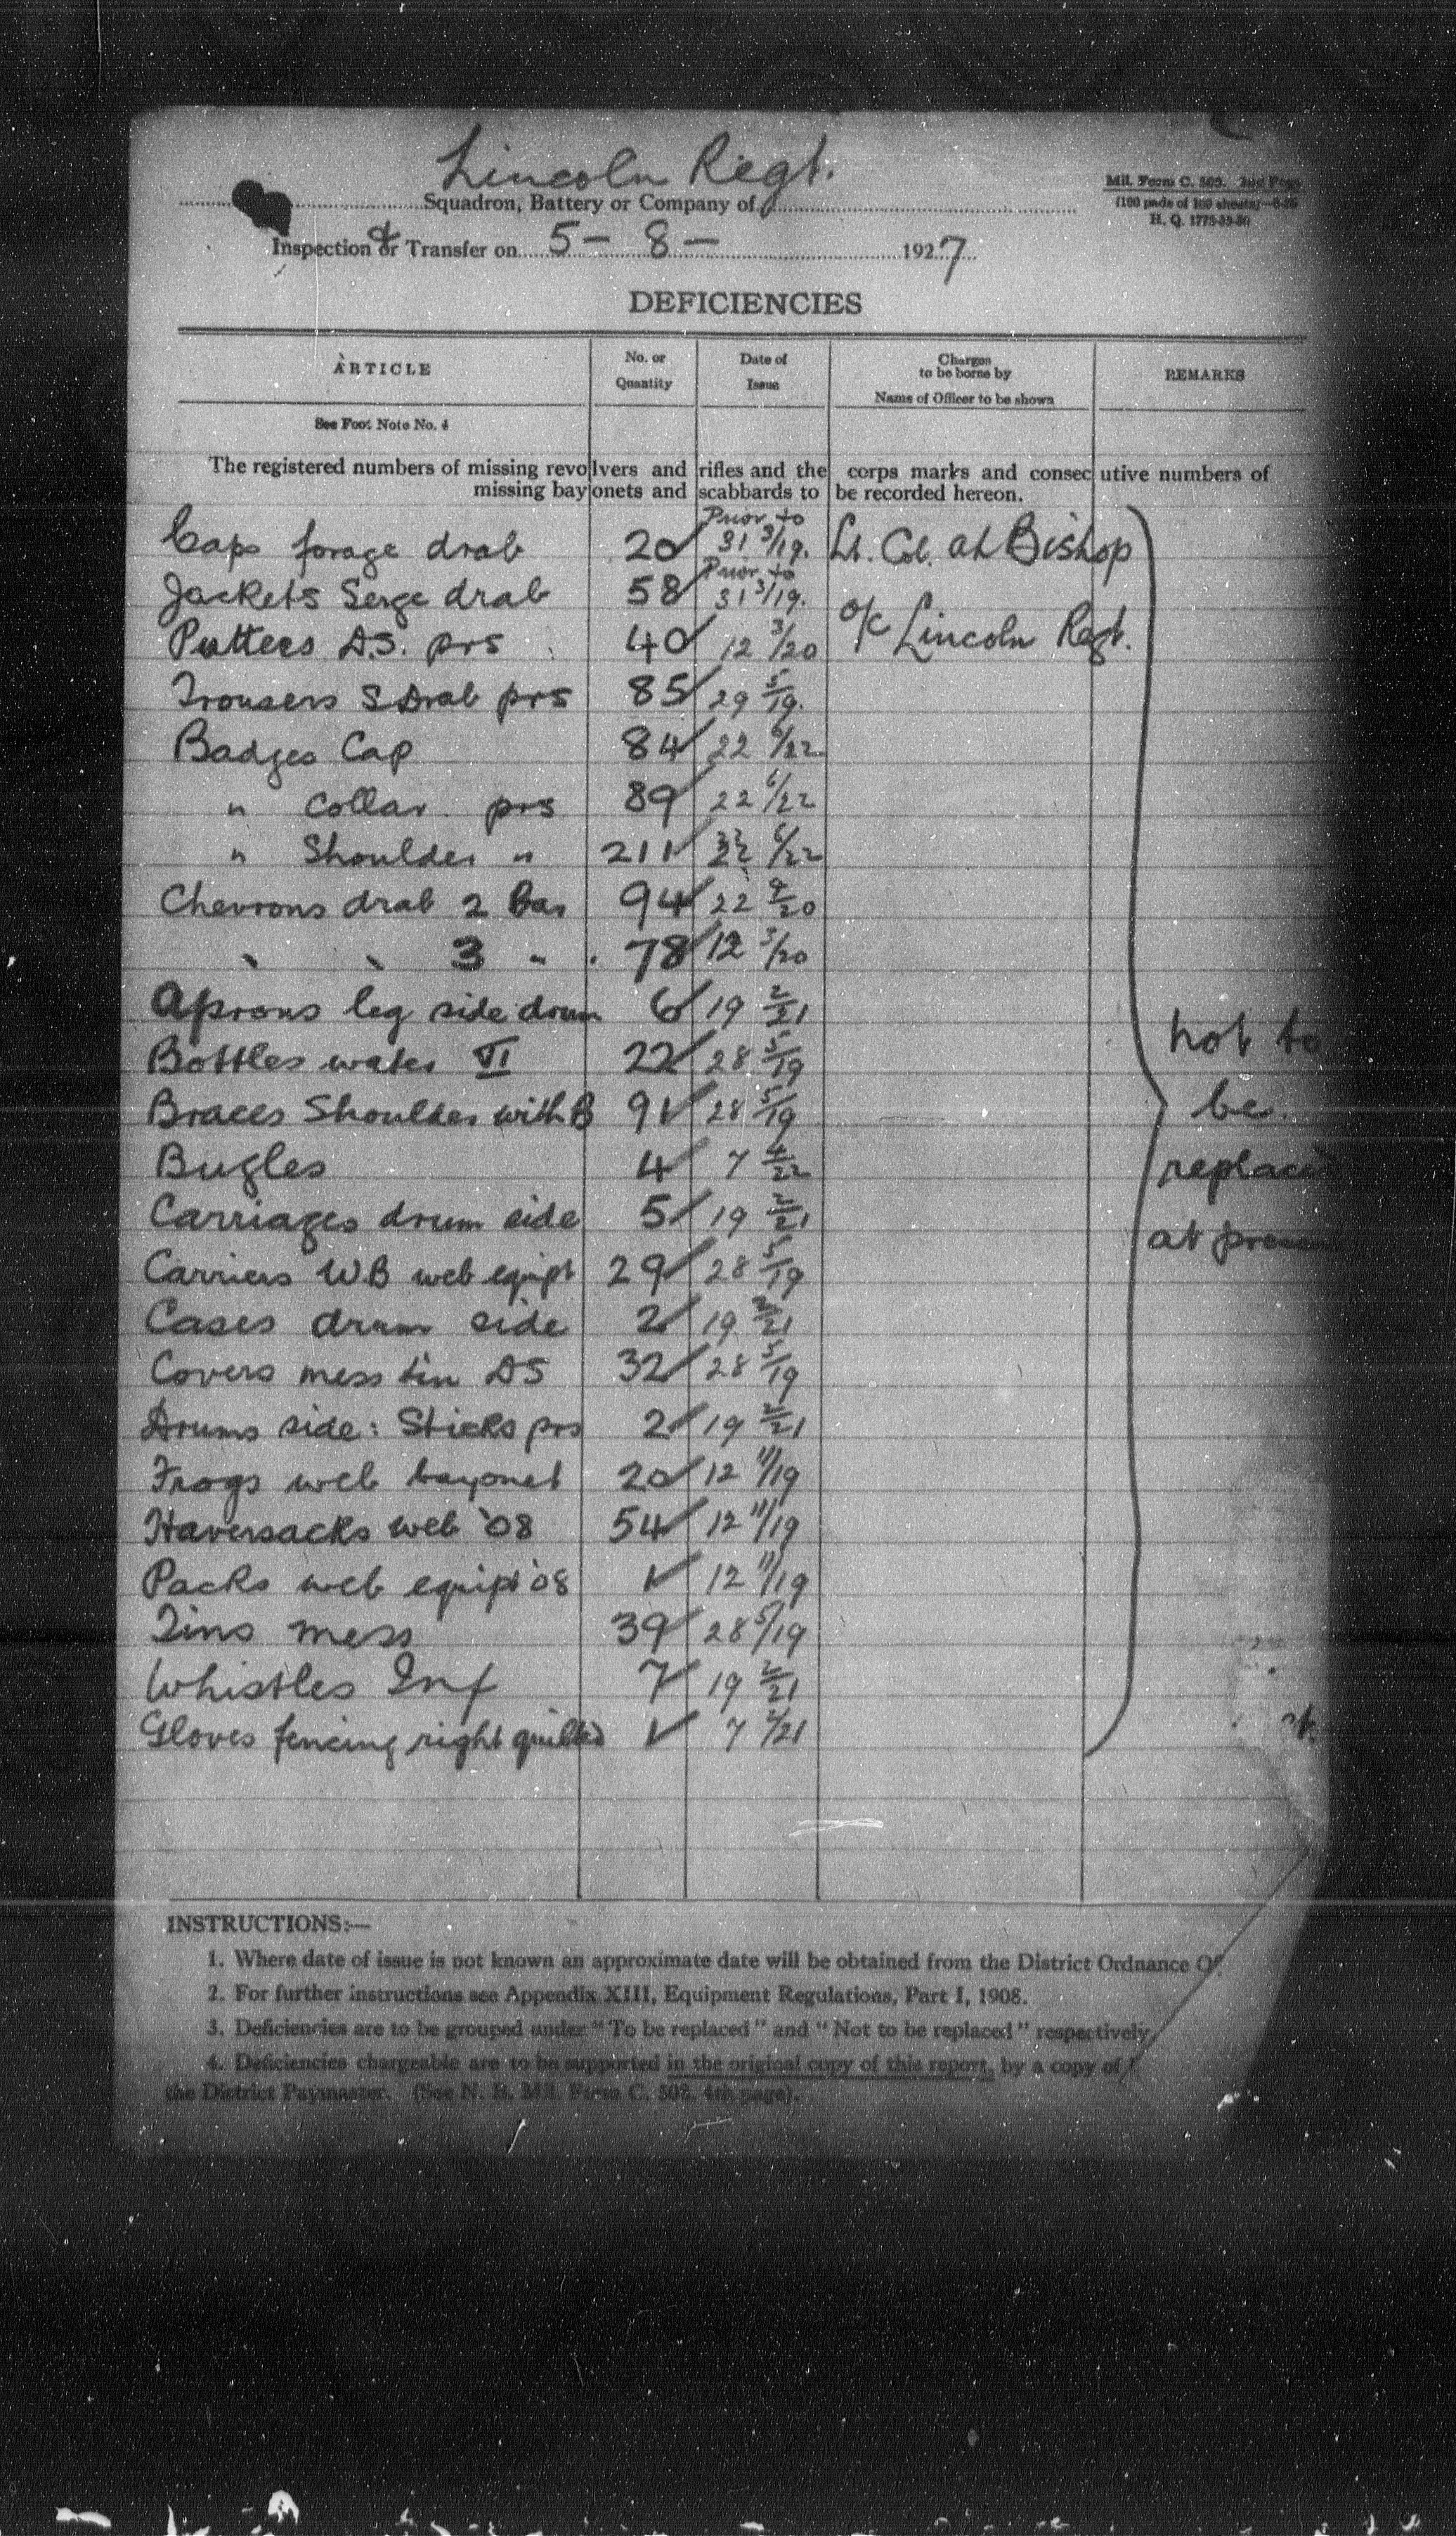 Lincoln Regt.
Mil. Form C. 503. 2nd Page
(100 pads of 100 sheets)
H. Q. 1772-39-
Squadron, Battery or Company of
Inspection & Transfer on 5 - 8 - 1927
DEFICIENCIES
ARTICLE No. or Quantity Date of Issue Charges to be borne by Name of Officer to be shown REMARKS
See Foot Note No. 4
The registered numbers of missing revolvers and rifles and the corps marks and consecutive numbers of
missing bayonets and scabbards to be recorded hereon.
Caps forage drab 20 Prior to 31 3/19. Lt. Col. A L Bishop
Jackets Serge drab 58 Prior to 31 3/19.
Puttees D.S. prs 40 12 3/20 o/c Lincoln Regt.
Trousers S Drab prs 85 29 5/19.
Badges Cap 84 22 6/22
" Collar prs 89 22 6/22
" Shoulder " 211 22 6/22
Chevrons drab 2 Bar 94 22 9/20
" " 3 " 78 12 3/20
Aprons leg side drum 6 19 2/21
Bottles water VI 22 28 5/19
Braces Shoulder with B 91 28 5/19
Bugles 4 7 4/22
Carriages drum side 5 19 2/21
Carriers W.B web equipt 29 28 5/19
Cases drum side 2 19 2/21
Covers mess tin DS 32 28 5/19
Drums side: Sticks prs 2 19 2/21
Frogs web bayonet 20 12 11/19
Haversacks web '08 54 12 11/19
Packs web equipt '08 1 12 11/19
Tins mess 39 28 5/19
Whistles Inf 7 19 2/21
Gloves fencing right quilted 1 7 2/21
not to
be
replaced
at present
INSTRUCTIONS:—
1. Where date of issue is not known an approximate date will be obtained from the District Ordnance Of
2. For further instructions see Appendix XIII, Equipment Regulations, Part I, 1908.
3. Deficiencies are to be grouped under "To be replaced" and "Not to be replaced" respectively.
4. Deficiencies chargeable are to be supported in the original copy of this report, by a copy of
the District Paymaster. (See N. B. Mil. Form C. 502. 4th page).